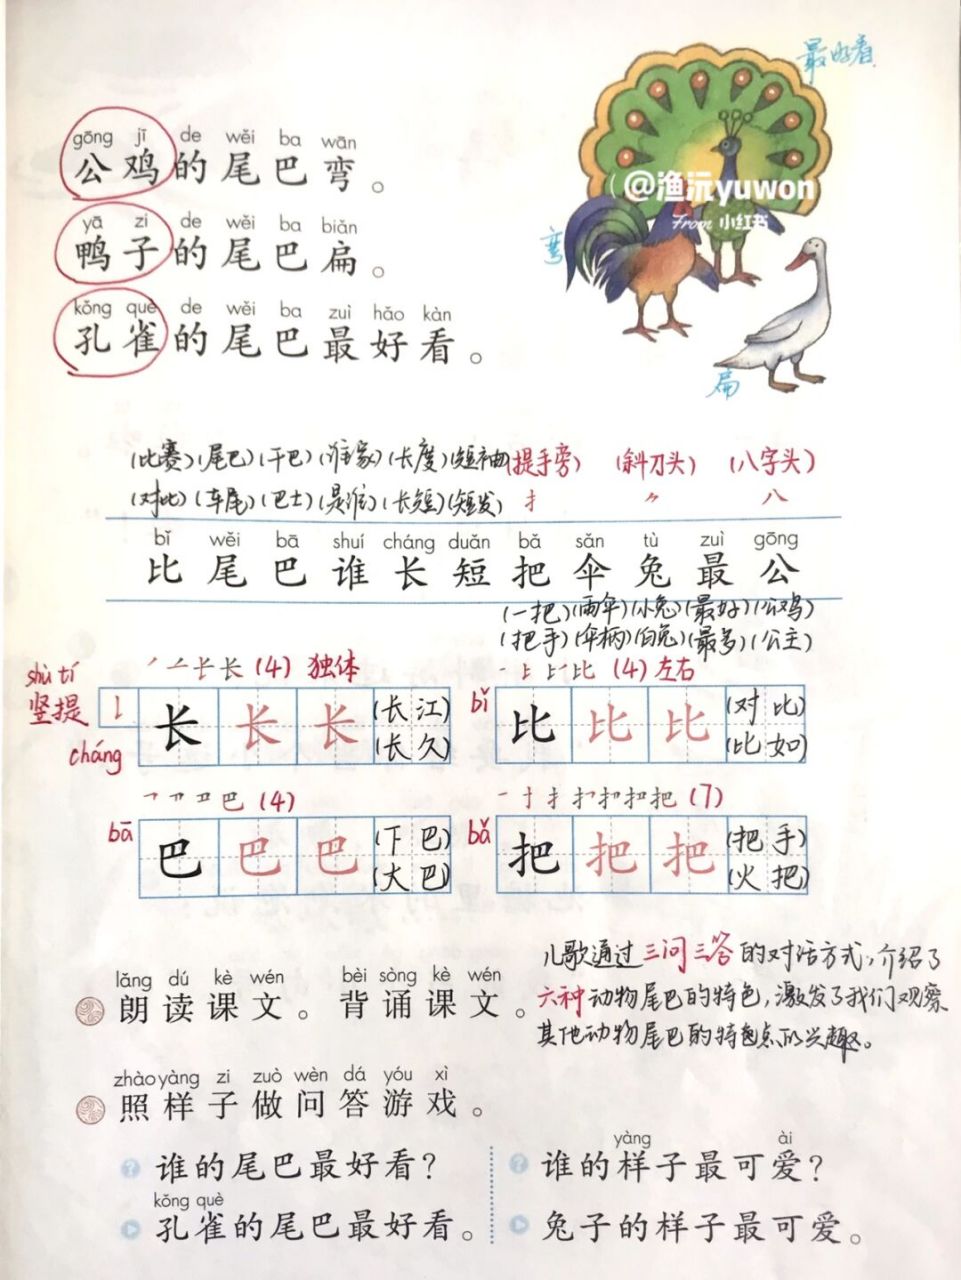 最好看
gōng jī de wěi ba wān
公鸡的尾巴弯。
@渔沅yuwon
From 小红书
yā zi de wěi ba biǎn
鸭子的尾巴扁。
弯
kǒng què de wěi ba zuì hǎo kàn
孔雀的尾巴最好看。
扁
(比赛)(尾巴)(干巴)(谁家)(长度)(短袖)(提手旁) (斜刀头) (八字头)
(对比)(车尾)(巴士)(是谁)(长短)(短发) 扌 ⺈ 八
bǐ wěi bā shuí cháng duǎn bǎ sǎn tù zuì gōng
比尾巴谁长短把伞兔最公
(一把)(雨伞)(小兔)(最好)(公鸡)
(把手)(伞柄)(白兔)(最多)(公主)
shù tí
竖提
(4) 独体
cháng
长 长 长 (长江)
(长久)
(4) 左右
bǐ
比 比 比 (对比)
(比如)
(4)
bā
巴 巴 巴 (下巴)
(大巴)
(7)
bǎ
把 把 把 (把手)
(火把)
儿歌通过三问三答的对话方式,介绍了
六种动物尾巴的特色,激发了我们观察
其他动物尾巴的特色点的兴趣。
lǎng dú kè wén bèi sòng kè wén
朗读课文。背诵课文。
zhào yàng zi zuò wèn dá yóu xì
照样子做问答游戏。
谁的尾巴最好看?
kǒng què
孔雀的尾巴最好看。
yàng ài
谁的样子最可爱?
兔子的样子最可爱。